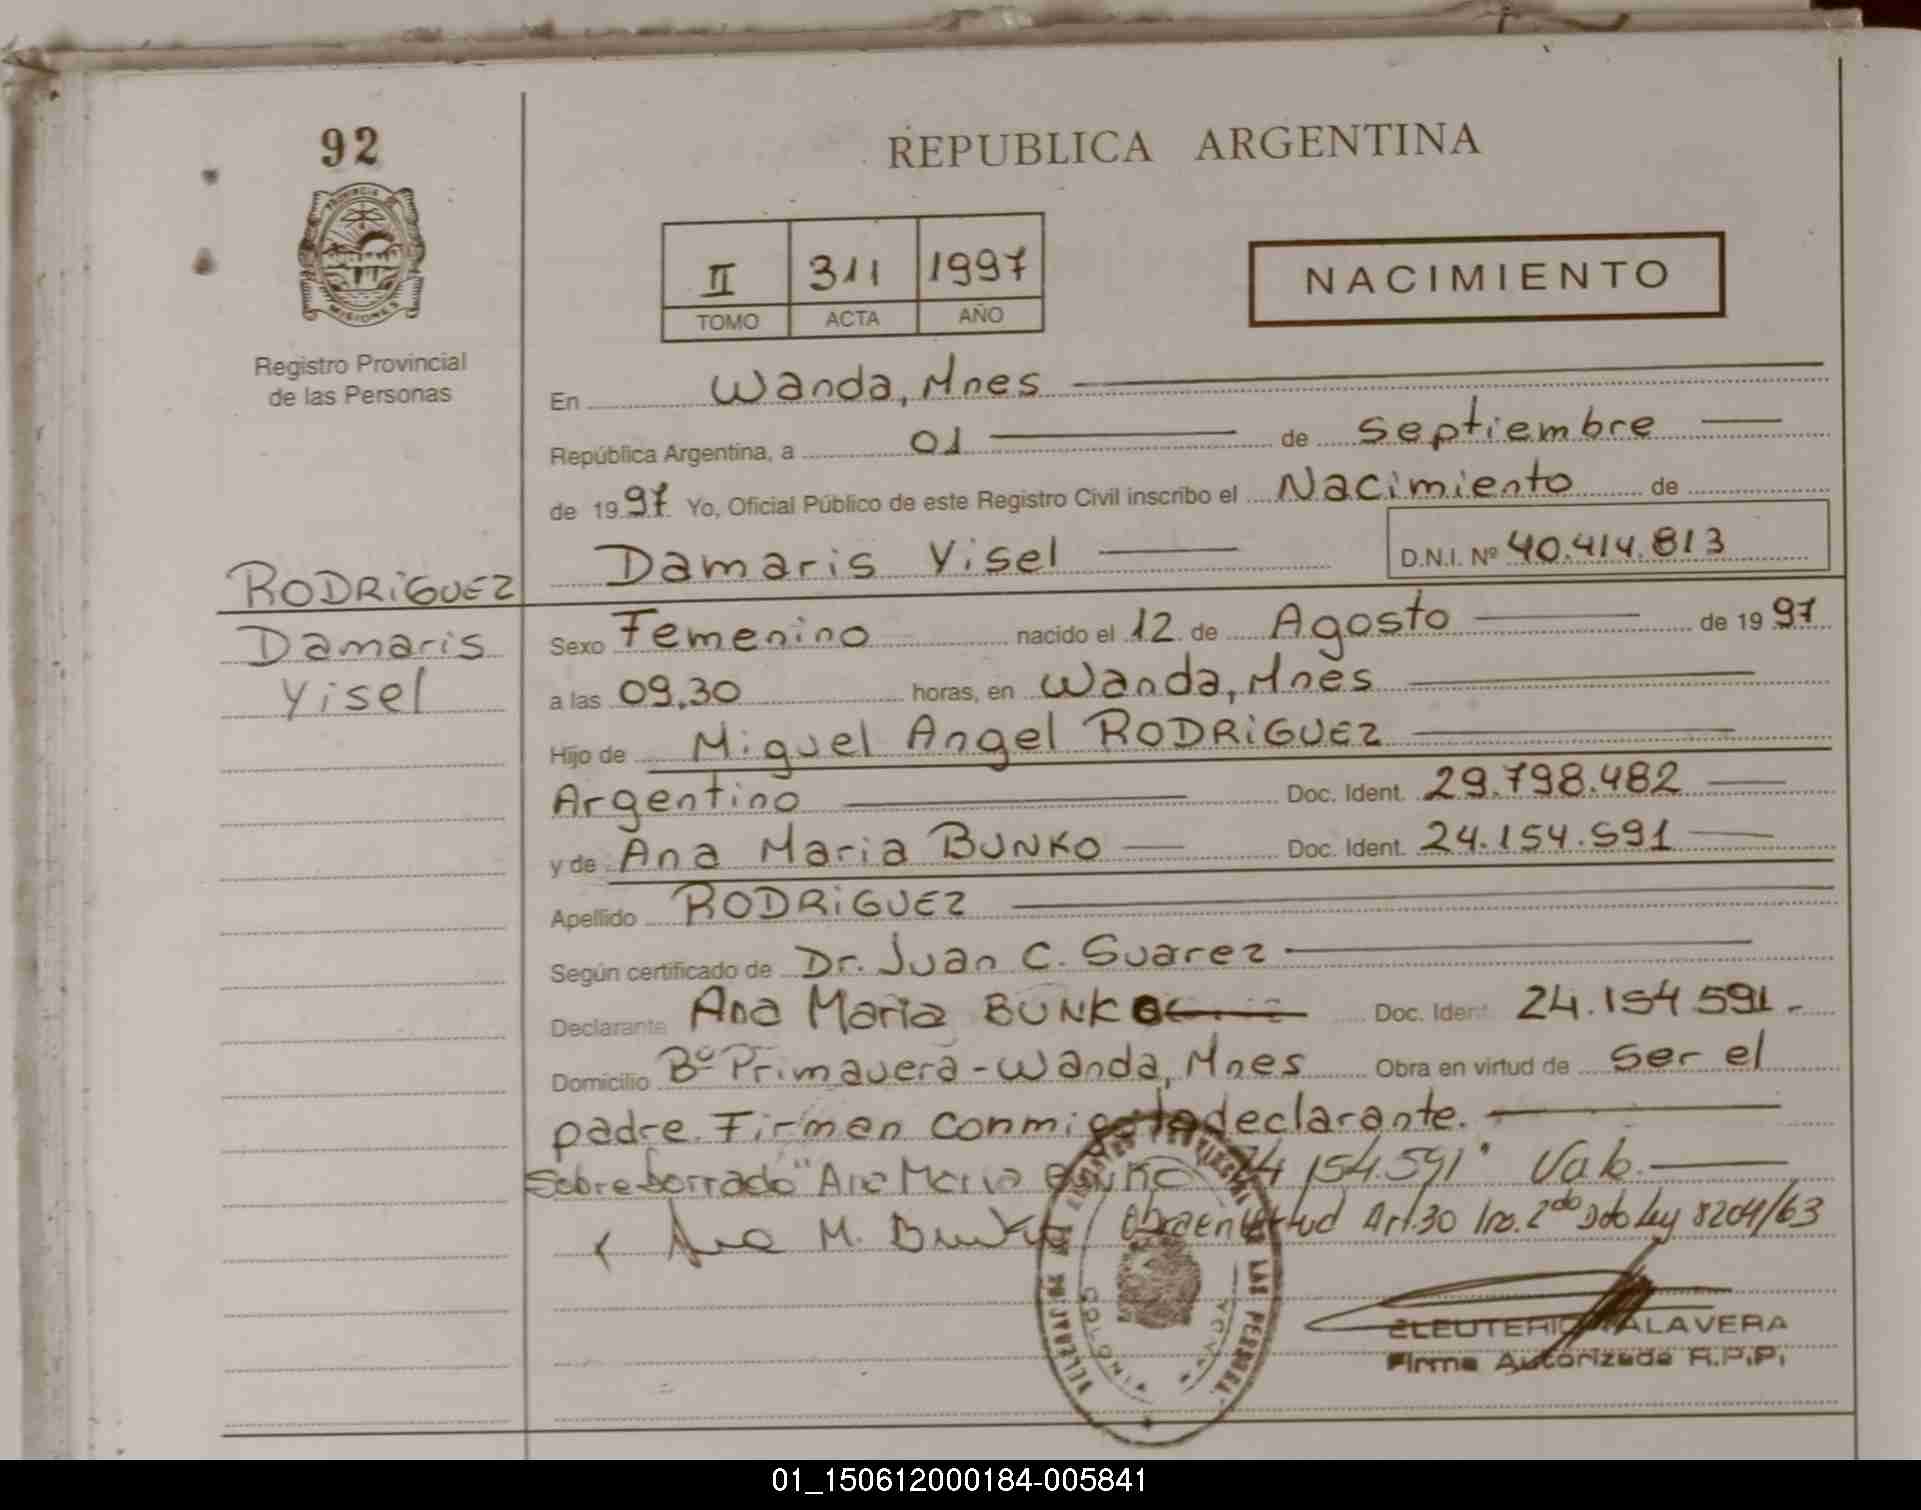 92
PROVINCIA DE
MISIONES
Registro Provincial
de las Personas
REPUBLICA ARGENTINA
II 311 1997
TOMO ACTA AÑO
NACIMIENTO
En Wanda, Mnes
República Argentina, a 01 de Septiembre
de 1997 Yo, Oficial Público de este Registro Civil inscribo el Nacimiento de
Damaris Yisel D.N.I. Nº 40.414.813
RODRiGUEZ
Damaris
Yisel
Sexo Femenino nacido el 12 de Agosto de 1997
a las 09,30 horas, en Wanda, Mnes
Hijo de Miguel Angel RODRiGUEZ
Argentino Doc. Ident. 29.798.482
y de Ana Maria BUNKO Doc. Ident. 24.154.591
Apellido RODRiGUEZ
Según certificado de Dr. Juan C. Suarez
Declarante Ana Maria BUNKO Doc. Ident. 24.154.591.-
Domicilio Bº Primavera - Wanda, Mnes Obra en virtud de ser el
padre. Firman conmigo declarante.
Sobreborrado "Ana Maria BUNKO 24.154.591" Vale.
Ana M. Bunko Obra en virtud Art. 30 Inc. 2do Dto Ley 8204/63
LAS PERSONAS
COLONIA WANDA
ELEUTERIO TALAVERA
Firma Autorizada R.P.P.
01_150612000184-005841